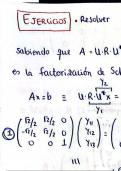 EJERCICIOS • Resolver
sabiendo que A = U·R·U*
es la factorización de Sch
Y₂
Ax = b ≡ U·R·U*x =
Y₁
① ( √2/2 √2/2 0 ) ( Y₁₁ ) (
-√2/2 √2/2 0 Y₁₂ =
0 0 1 Y₁₃